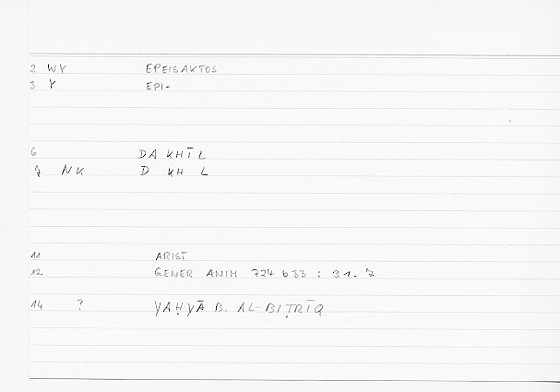 2 WY EPEISAKTOS
3 Y EPI-
6 DAKHĪL
7 NK D KH L
11 ARIST
12 GENER ANIM 724 b 33 : 31.7
14 ? YAḤYĀ B. AL-BIṬRĪQ